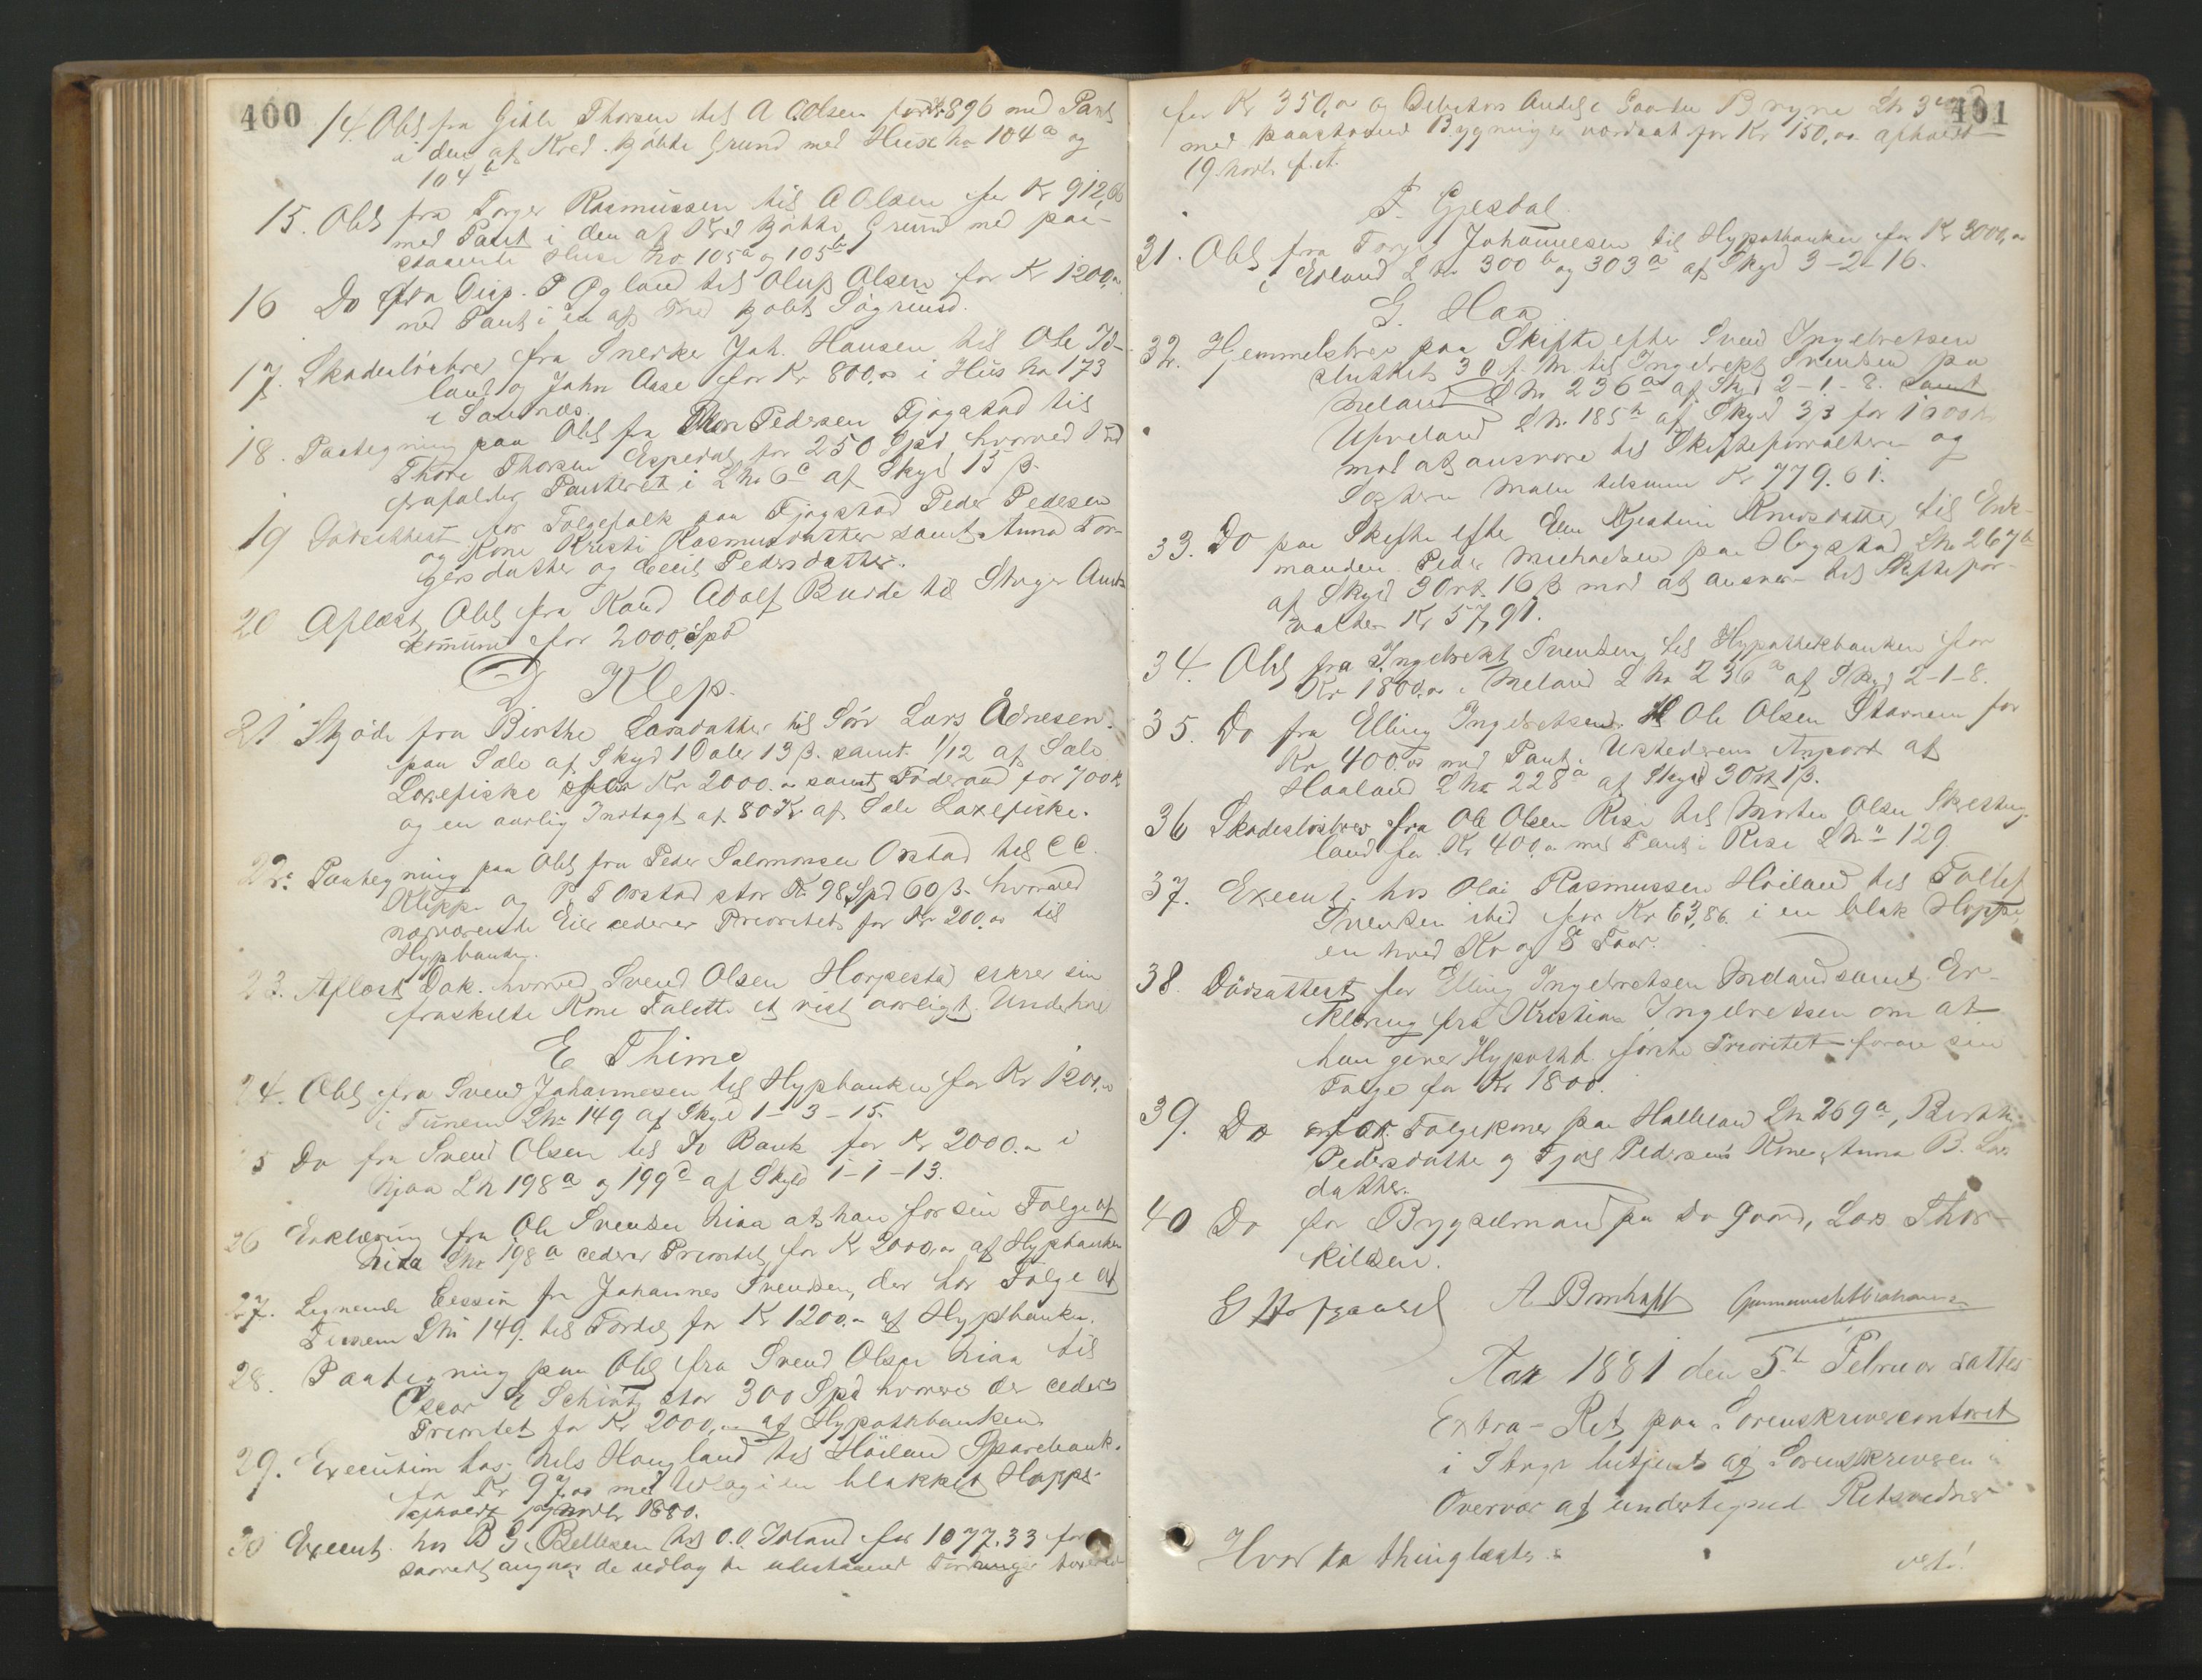 400
14. Obl fra Gitle Thorsen til A C Olsen for Kr 896 med Pant
i den af Kred. kjöbte Grund med Huse No 104a og
104b
15. Obl fra Torger Rasmussen til A Olsen for Kr 912,
med Pant i den af Kred kjöbte Grund med paa-
staaende Huse No 105a og 105b
16 Do fra Disp. P Ogland til Oluf Olsen for Kr 1200,
med Pant i en af Kred kjöbt Grund.
17. Skadeslösbrev fra Snerker Joh. Hansen til Ole Id-
land og John Aase for Kr 800,00 i Hus No 173
i Sandnes.
18. Paategning paa Obl fra Pedersen Fjogstad til
Thore Thorsen Espedal for 250 Spd hvorved
frafalder Panteret i L No 6c af Skyld 15 β.
19 Dödsattest for Folgefolk paa Fjogstad Peder Pedersen
og Kone Kristi Rasmusdatter samt Anna Tor-
gersdatter og Cecil Pedersdatter.
20 Aflæst Obl fra Kand Adolf Budde til Stvgr Amts
kommune for 2000 Spd
D Klep.
21 Skjöde fra Birthe Larsdatter til Sön Lars Ådnesen
paa Sele af Skyld 1 Daler 13 β. samt 1/12 af Sele
Laxefiske for Kr 2000.00 samt Föderaad for 700 Kr
og en aarlig Indtægt af 80 Kr af Sele Laxefiske.
22. Paategning paa Obl fra Peder Salomonsen Orstad til C C.
Kleppe og P. T Orstad stor 98 Spd 60 β. hvorved
nærværende Eier cederer Prioritet for Kr 200,00 til
Hypbanken.
23. Aflæst Dok. hvorved Svend Olsen Horpestad sikrer sin
fraskilte Kone Talette et vist aarligt Underhold
E Thime
24. Obl fra Svend Johannesen til Hypbanken for Kr 1200,00
i Tunem L No 149 af Skyld 1-3-15.
5 Do fra Svend Olsen til Do Bank for Kr 2000.00 i
Njaa L No 198a og 199d af Skyld 1-1-13.
26 Erklæring fra Ole Svendsen Niaa at han for sin Folge af
Niaa L No 198a cederer Prioritet for Kr 2000,00 af Hypbanken
27. Lignende Cession fra Johannes Svendsen, der har Folge af
Tunem L No 149. til Fordel for Kr 1200.00 af Hypthbanken.
28. Paategning paa Obl fra Svend Olsen Niaa til
Oscar E Schiötz stor 300 Spd hvorved der cederes
Prioritet for Kr 2000,00 af Hypothbanken
29. Execution hos Nils Haugland til Höiland Sparebank.
for Kr 97.00 med Udlæg i en blakket Hoppe
afholdt Novbr 1880.
30 Execut. hos B G. Bellesen til O.O. Idland for 1077.33 for
saavidt angaar de udlagte udestaaende Fordringer
401
for Kr 350,00 og Debitors Andel i Gaarden Bryne L No 3
med paastaaende Bygninger værdsat for Kr 150,00 afholdt
19 Novbr f. A.
F. Gjesdal
31. Obl fra Torger Johannesen til Hypothbanken for Kr 3000,00
i Edland L No 300b og 303a af Skyld 3-2-16.
G. Haa
32. Hjemmelsbrev paa Skifte efter Svend Ingebretsen
sluttet 30 f. M. til Ingebrekt Svendsen paa
Meland L No 236a af Skyld 2-1-8. samt
Upveland L No. 185b af Skyld 33 for 1600 Kr
mod at ansvare til Skifteforvalteren og
Söstren Malen tilsammen Kr 779.61.
33. Do paa Skifte efter Elen Kjestine Knudsdatter til Enke-
manden Peder Michaelsen paa Hogstad L No 267b
af Skyld 3 Ort. 16 β mod at ansvare til Skiftefor-
valteren Kr 57,91.
34. Obl fra Ingebrekt Svendsen til Hypothekbanken for
Kr 1800,00 i Meland L No 236a af Skyld 2-1-8.
35. Do fra Elling Ingebretsen til Ole Olsen Stavnem for
Kr. 400.00 med Pant i Udstederens Anpart af
Haaland L No 228a af Skyld 3 Ort 1 β.
36 Skadeslösbrev fra Ole Olsen Risa til Morten Olsen Skretting-
land for Kr. 400,00 med Pant i Risa L No 129
37. Execut. hos Olai Rasmussen Höiland til Tollef
Svendsen ibid for Kr 63,86 i en blak Hoppe
en hvid Ko og 8 Faar.
38. Dödsattest for Elling Ingebretsen Meland samt Er-
klæring fra Kristian Ingebretsen om at
han giver Hypothb. förste Prioritet foran sin
Folge for Kr 1800.
39. Do for Folgekoner paa Halleland L No 269a, Berthe
Pedersdatter og Fjos Pedersens Kone, Anna B. Lars
datter.
40 Do for Bygselmand paa Do Gaard, Lars Thor-
kildsen.
A Bomhoff
Aar 1881 den 5te Februar sattes
Extra-Ret paa Sorenskrivercontoret
i Stvgr betjent af Sorenskriveren i
Overvær af undertegned Retsvidner
Hvor da thinglæstes: